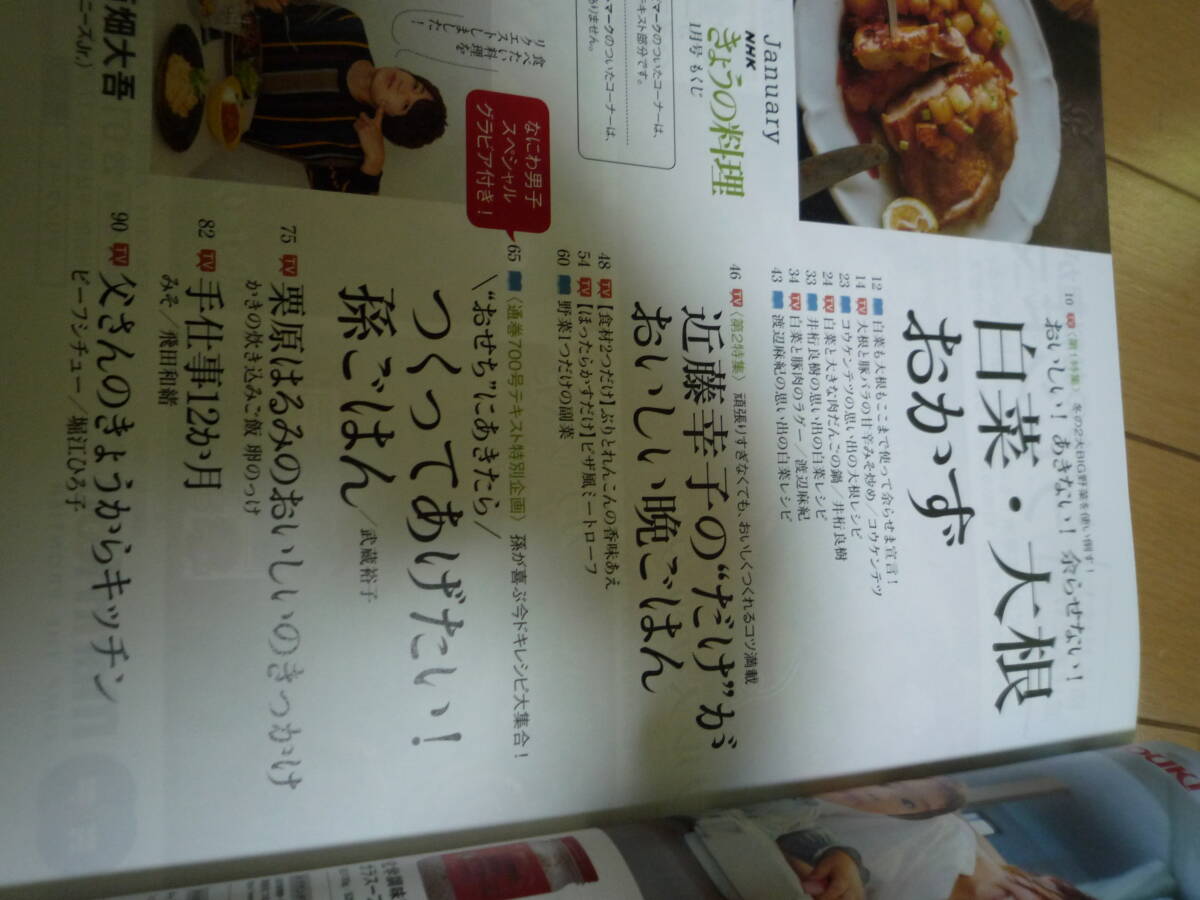 January
NHK
きょうの料理
1月号 もくじ
マークのついたコーナーは、
キスト部分です。
マークのついたコーナーは、
ありません。
食べたい料理を
リクエストしました!
なにわ男子
スペシャル
グラビア付き!
畑大吾
ニーズJr.)
10 TV 〈第1特集〉 冬の2大BIG野菜を使い倒す!
おいしい! あきない! 余らせない!
白菜・大根
おかず
12 白菜も大根もここまで使って余らせま宣言!
14 TV 大根と豚バラの甘辛みそ炒め/コウケンテツ
23 コウケンテツの思い出の大根レシピ
24 TV 白菜と大きな肉だんごの鍋/井桁良樹
33 井桁良樹の思い出の白菜レシピ
34 TV 白菜と豚肉のラグー/渡辺麻紀
43 渡辺麻紀の思い出の白菜レシピ
46 TV 〈第2特集〉 頑張りすぎなくても、おいしくつくれるコツ満載
近藤幸子の“だけ”が
おいしい晩ごはん
48 TV 【食材2つだけ】ぶりとれんこんの香味あえ
54 TV 【ほったらかすだけ】ピザ風ミートローフ
60 野菜1つだけの副菜
65 〈通巻700号テキスト特別企画〉 孫が喜ぶ今ドキレシピ大集合!
\“おせち”にあきたら/
つくってあげたい!
孫ごはん/武蔵裕子
75 TV 栗原はるみのおいしいのきっかけ
かきの炊き込みご飯 卵のっけ
82 TV 手仕事12か月
みそ/飛田和緒
90 TV 父さんのきょうからキッチン
ビーフシチュー/堀江ひろ子